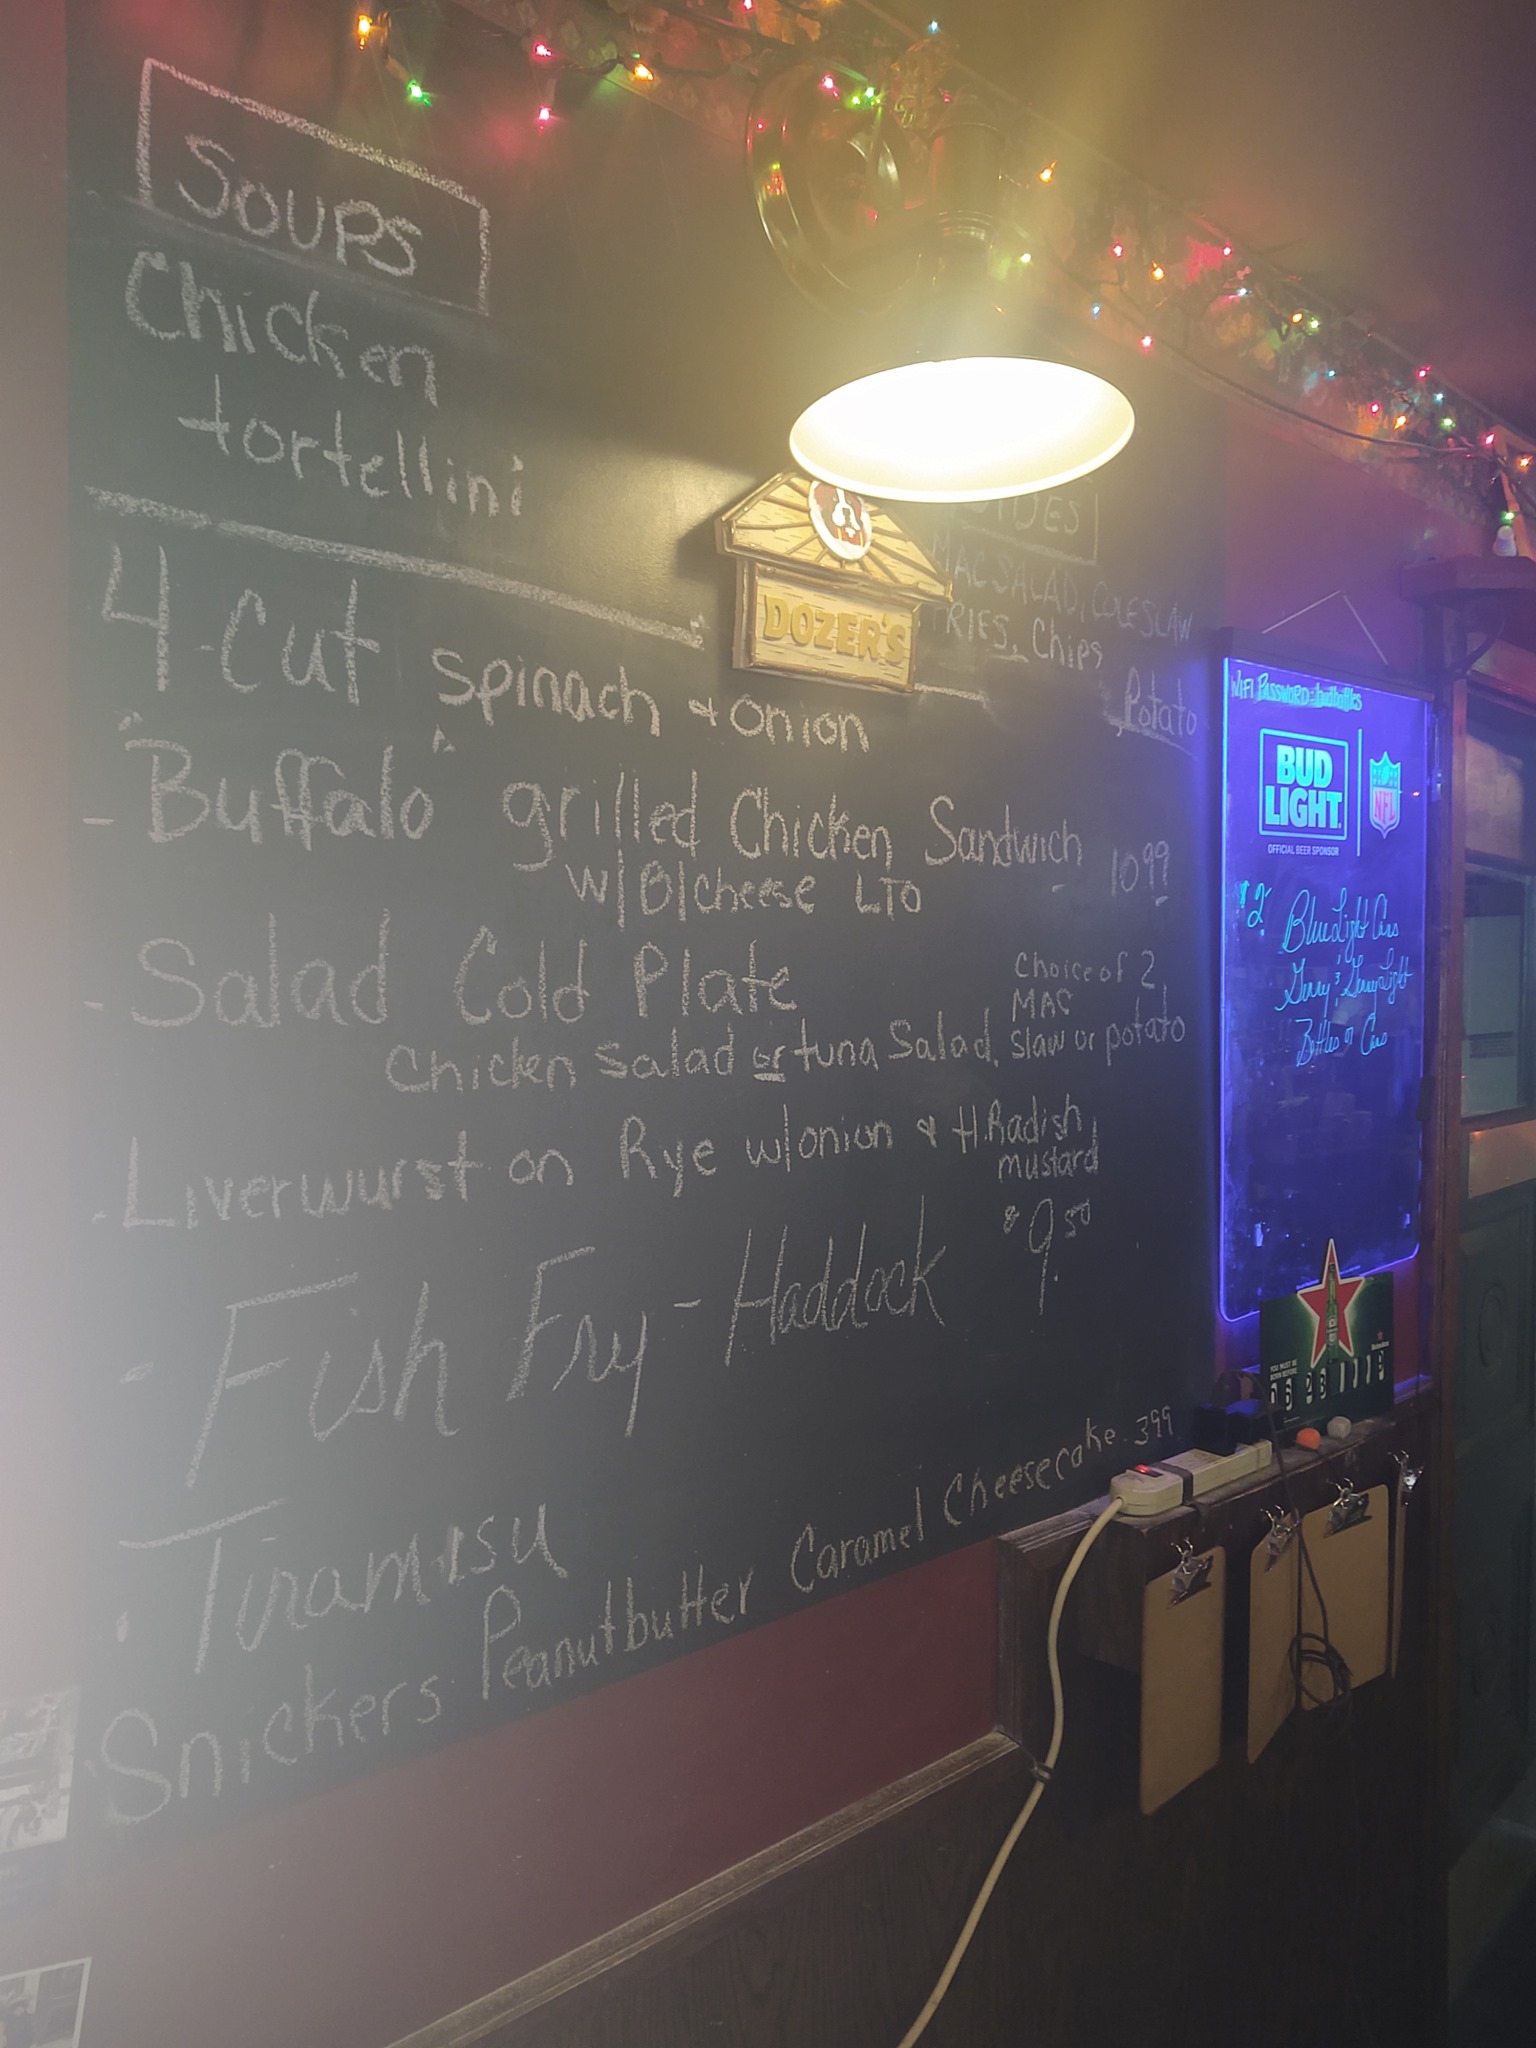 SOUPS
Chicken
tortellini
4-Cut spinach & onion
- "Buffalo" grilled Chicken Sandwich 10 99
w/ B/cheese LTO
- Salad Cold Plate
Chicken salad or tuna Salad.
Choice of 2
MAC
Slaw or potato
. Liverwurst on Rye w/onion & H. Radish
mustard
$ 9. 50
- Fish Fry - Haddock
. Tiramisu
Snickers Peanutbutter Caramel Cheesecake. 3 99
DOZER'S
SIDES
MAC SALAD, COLESLAW
FRIES, Chips
, Potato
WIFI PASSWORD:
BUD
LIGHT
NFL
OFFICIAL BEER SPONSOR
$2 Blue Light Cans
Genny & Genny Light
Bottles or Cans
YOU MUST BE
BORN BEFORE
Heineken